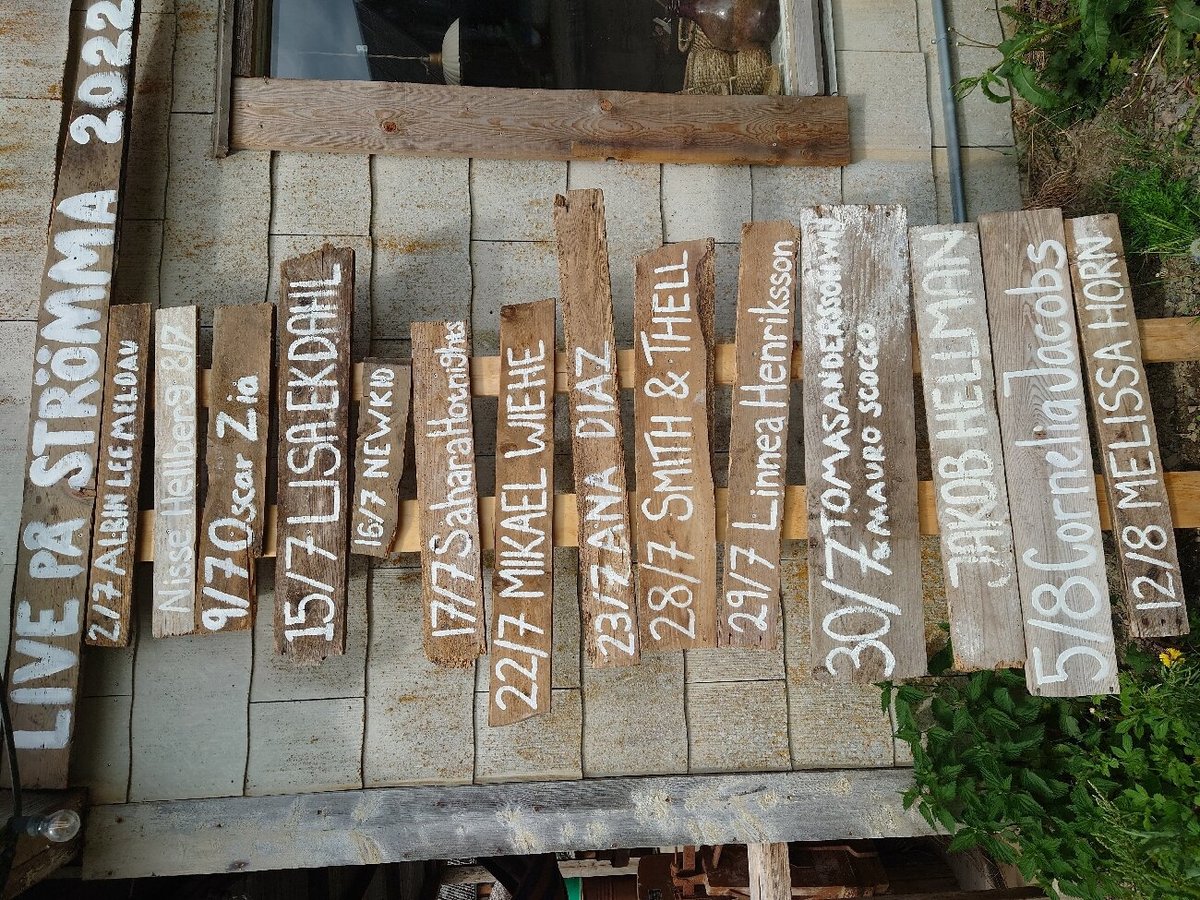 LIVE PÅ STRÖMMA 2022
2/7 ALBIN LEE MELDAU
Nisse Hellberg 8/7
9/7 Oscar Zia
15/7 LISA EKDAHL
16/7 NEWKID
17/7 Sahara Hotnights
22/7 MIKAEL WIEHE
23/7 ANA DIAZ
28/7 SMITH & THELL
29/7 Linnea Henriksson
30/7 TOMAS ANDERSSON WIJ
& MAURO SCOCCO
JAKOB HELLMAN
5/8 Cornelia Jacobs
12/8 MELISSA HORN